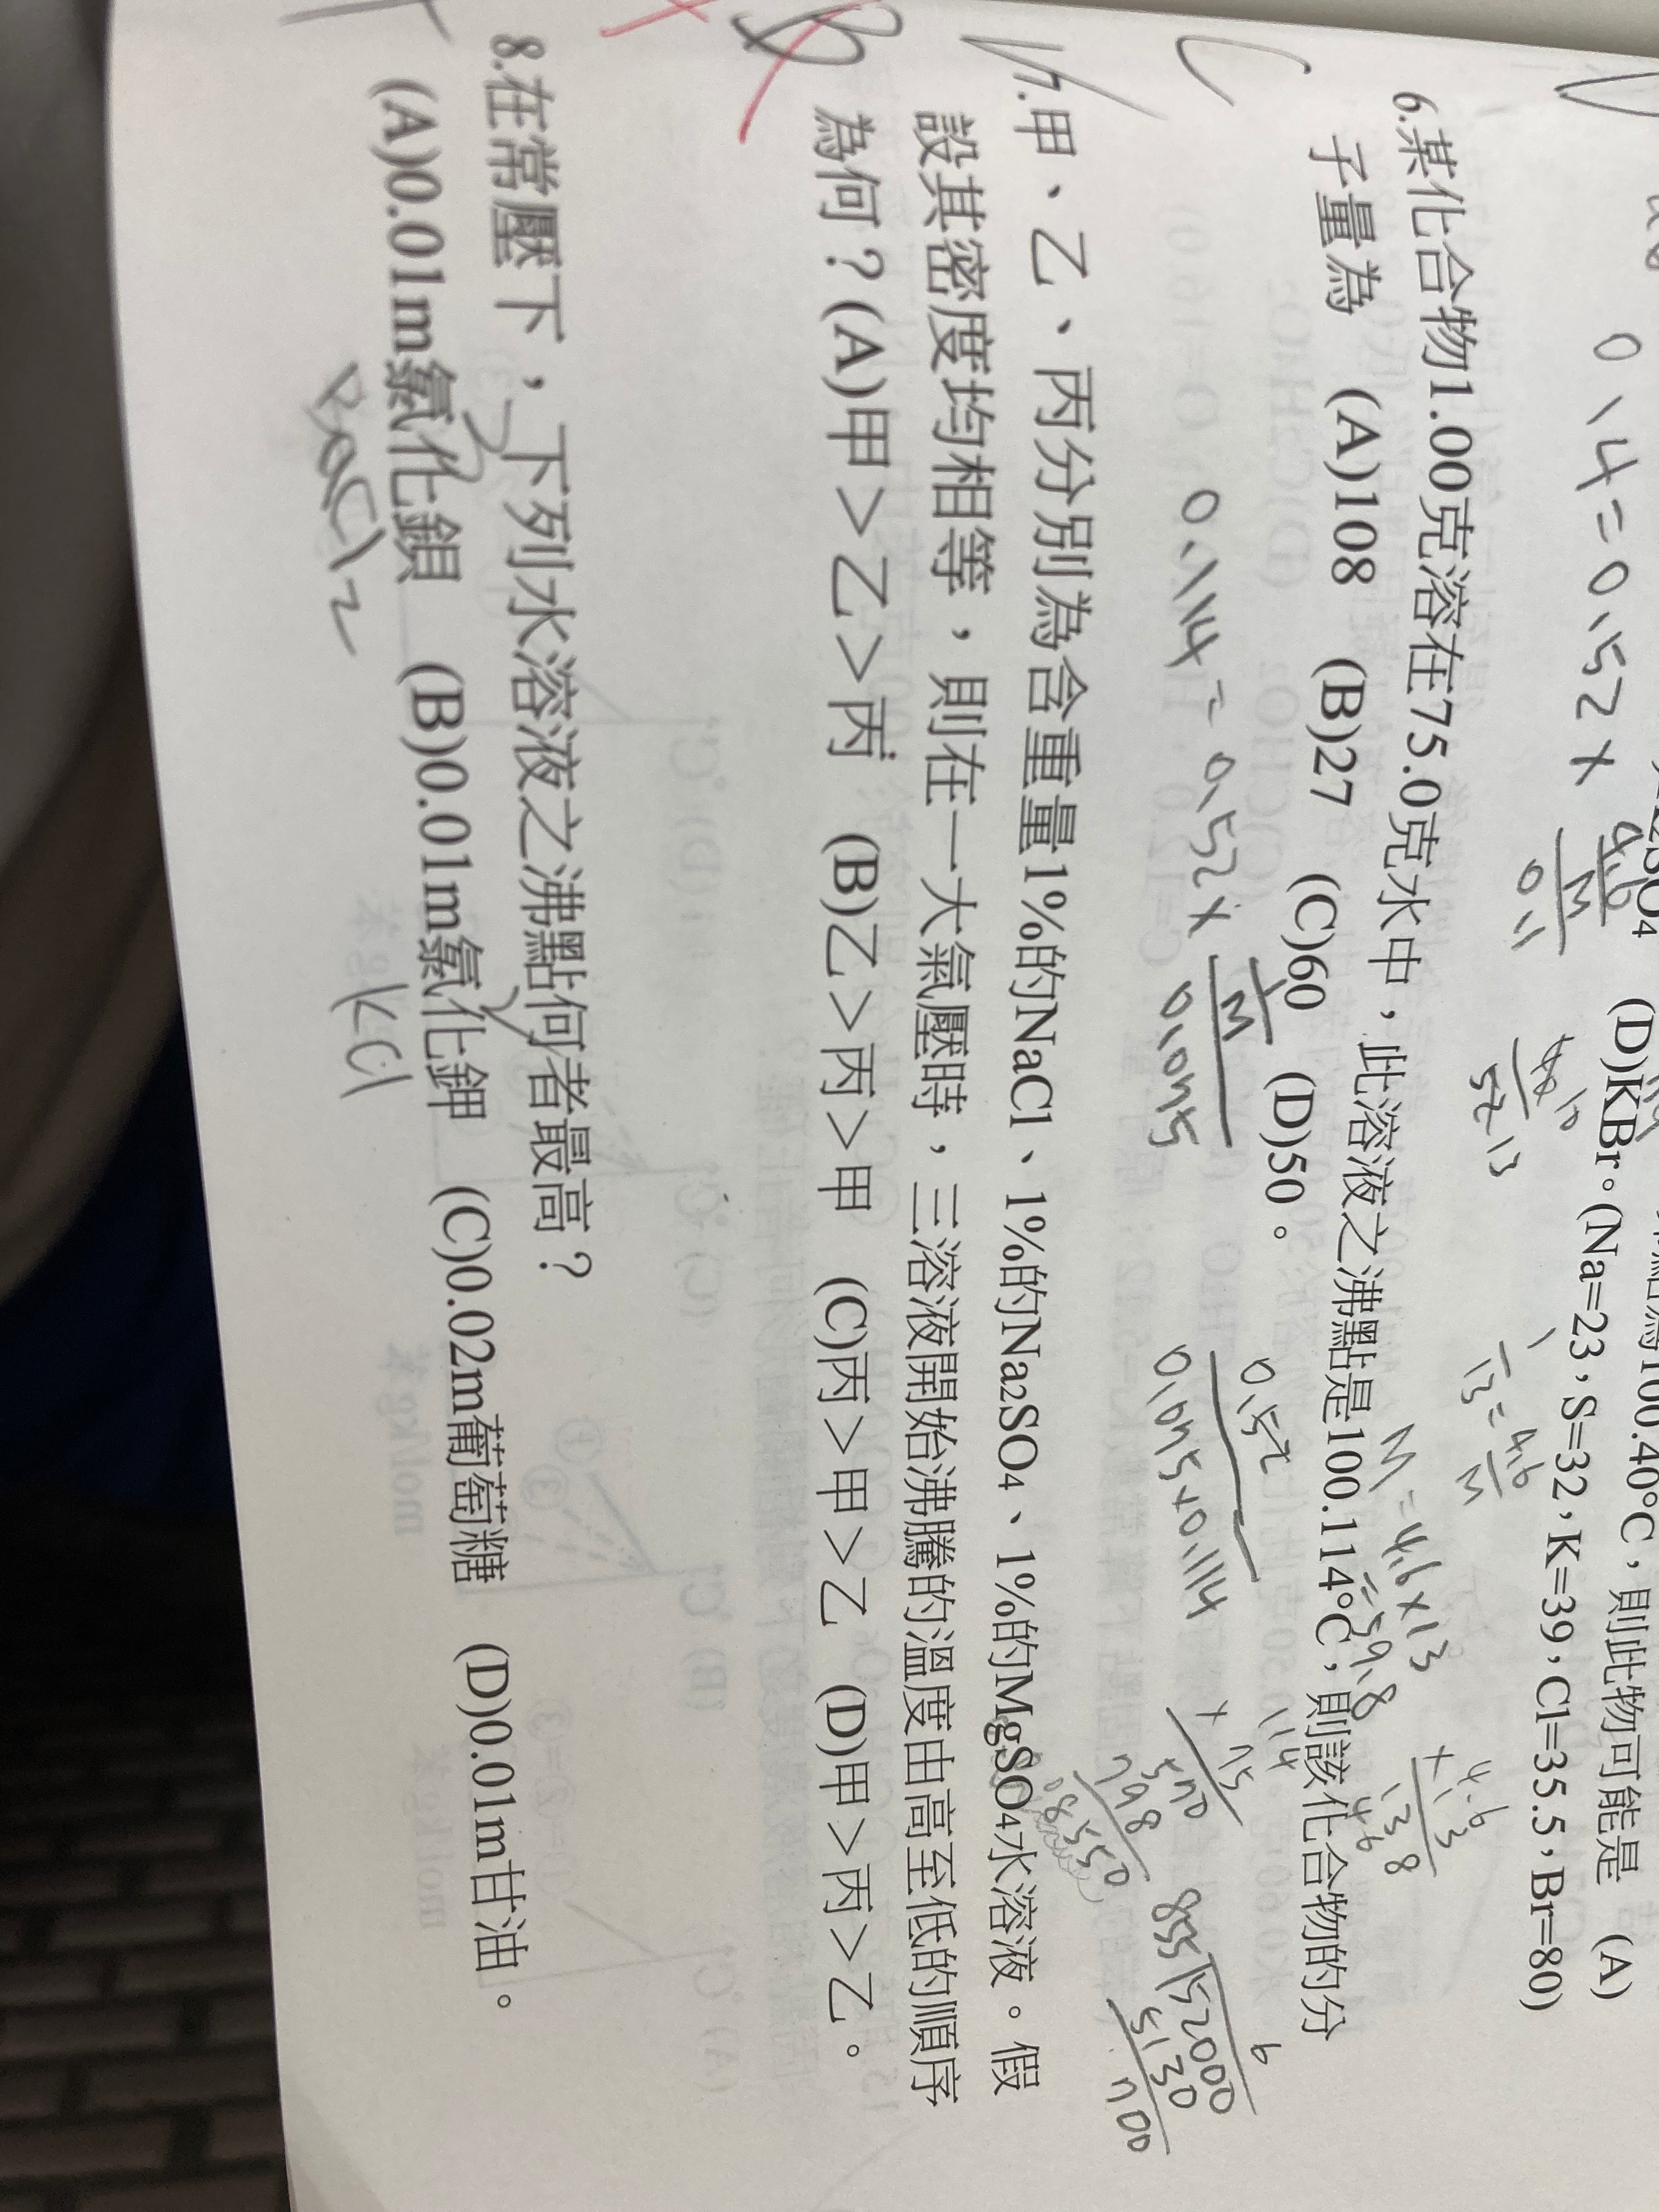 (D)KBr。(Na=23,S=32,K=39,Cl=35.5,Br=80)
100.40°C,則此物可能是 (A)
0.4=0.52×
4.6
M
0.1
40 10
52 13
1
13 = 4.6
M
M=4.6×13
=59.8
4.6
×13
138
46
6.某化合物1.00克溶在75.0克水中,此溶液之沸點是100.114°C,則該化合物的分
子量為 (A)108 (B)27 (C)60 (D)50。
C
0.114=0.52×
1
M
0.075
0.52
0.075×0.114
114
×75
570
798
8550
6
855 52000
5130
700
7.甲、乙、丙分別為含重量1%的NaCl、1%的Na2SO4、1%的MgSO4水溶液。假
設其密度均相等,則在一大氣壓時,三溶液開始沸騰的溫度由高至低的順序
為何?(A)甲>乙>丙 (B)乙>丙>甲 (C)丙>甲>乙 (D)甲>丙>乙。
B
8.在常壓下,下列水溶液之沸點何者最高?
(A)0.01m氯化鋇 (B)0.01m氯化鉀 (C)0.02m葡萄糖 (D)0.01m甘油。
3 2
BaCl2 KCl